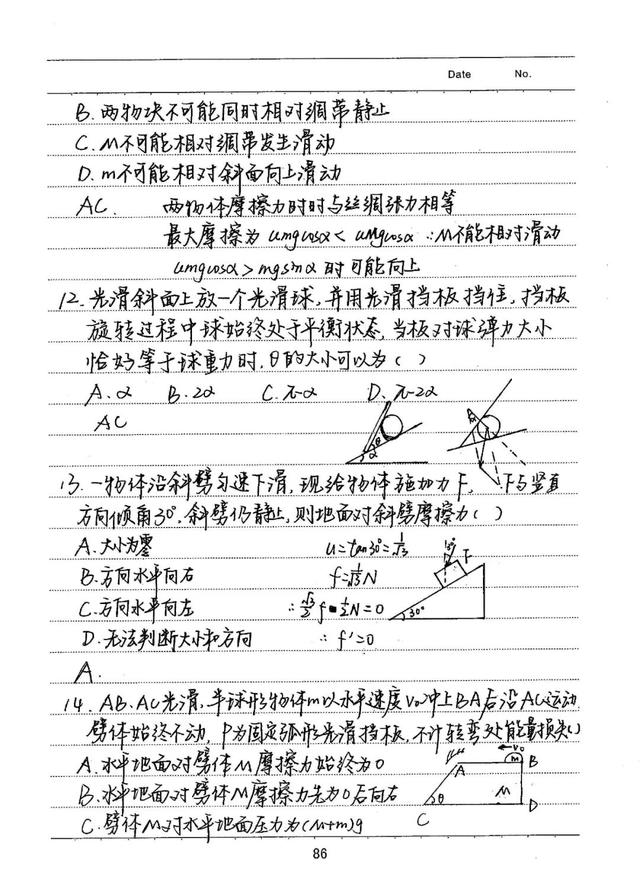 Date No.
B. 两物块不可能同时相对绸带静止
C. M不可能相对绸带发生滑动
D. m不可能相对斜面向上滑动
AC. 两物体摩擦力时时与丝绸张力相等
最大摩擦为 umgcosα < uMgcosα ∴M不能相对滑动
umgcosα > mgsinα 时可能向上
12. 光滑斜面上放一个光滑球, 并用光滑挡板挡住, 挡板
旋转过程中球始终处于平衡状态, 当板对球弹力大小
恰好等于球重力时, θ的大小可以为( )
A. α B. 2α C. π-α D. π-2α
AC
θ
α
13. 一物体沿斜劈匀速下滑, 现给物体施加力F, F与竖直
方向倾角30°, 斜劈仍静止, 则地面对斜劈摩擦力( )
A. 大小为零 u=tan30°=1/√3
B. 方向水平向右 f=1/√3 N
C. 方向水平向左 ∴ √3/2 f - 1/2 N = 0
D. 无法判断大小和方向 ∴ f'=0
30° F
30°
A.
14. AB、AC光滑, 半球形物体m以水平速度V₀冲上BA后沿AC运动
劈体始终不动, P为固定弧形光滑挡板, 不计转弯处能量损失( )
A. 水平地面对劈体M摩擦力始终为0
B. 水平地面对劈体M摩擦力先为0后向右
C. 劈体M对水平地面压力为(M+m)g
V₀
m B
A
M
θ D
C
86